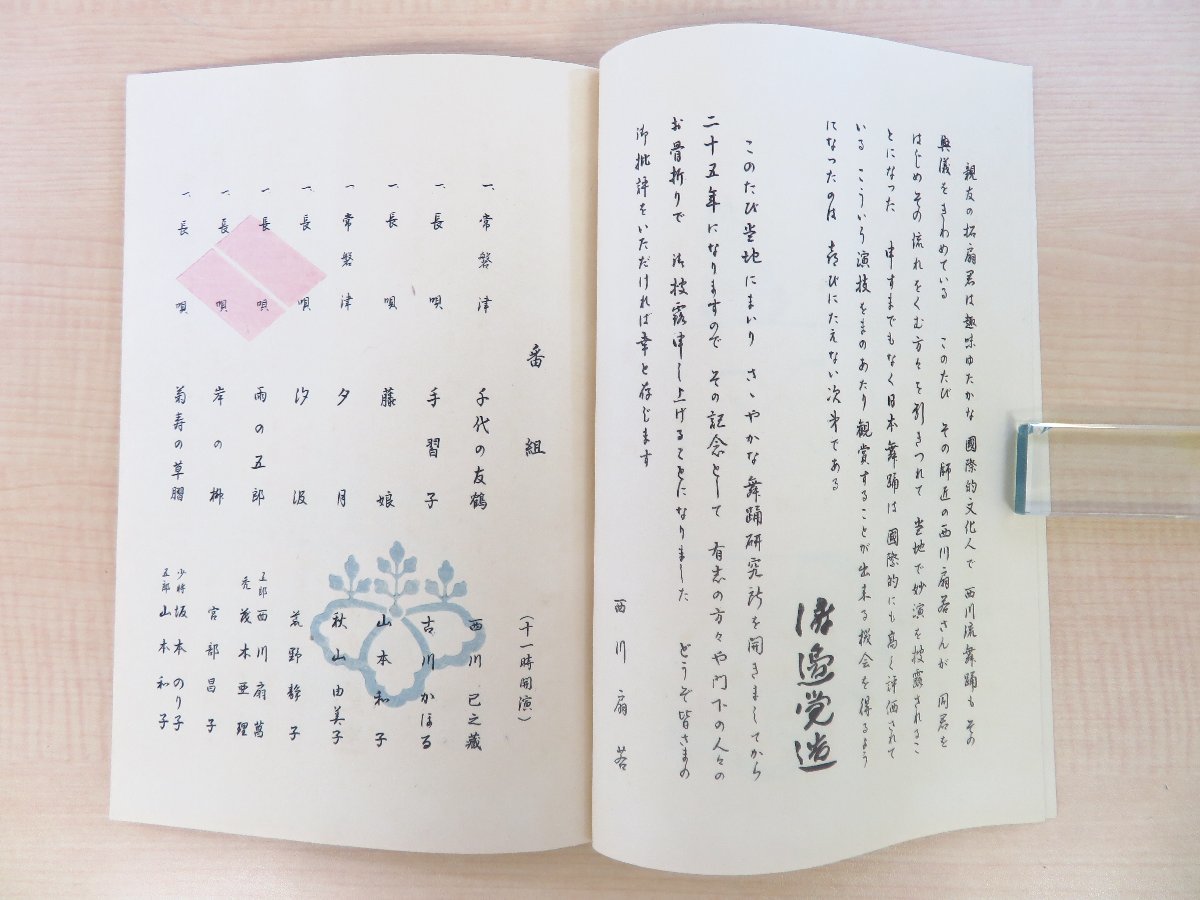 親友の拓扇君は趣味ゆたかな 國際的文化人で 西川流舞踊も その
奥儀をきわめている このたび その師匠の西川扇若さんが 同君を
はじめその流れをくむ方々を引きつれて 当地で妙演を披露されるこ
とになった 申すまでもなく日本舞踊は 國際的にも高く評価されて
いる こういう演技をまのあたり観賞することが出来る機会を得るよう
になったのは 喜びにたえない次第である
渡邉覚造
このたび当地にまいり さゝやかな舞踊研究所を開きましてから
二十五年になりますので その記念として 有志の方々や門下の人々の
お骨折りで 御披露申し上げることになりました どうぞ皆さまの
御批評をいただければ幸と存じます
西川扇若
番組
(十一時開演)
一、常磐津 千代の友鶴 西川巳之蔵
一、長唄 手習子 古川かほる
一、長唄 藤娘 山本和子
一、常磐津 夕月 秋山由美子
一、長唄 汐汲 荒野静子
一、長唄 雨の五郎 五郎 西川扇萬
禿 茂木亜理
一、長唄 岸の柳 宮部昌子
一、長唄 菊寿の草摺 少将 坂本のり子
五郎 山本和子